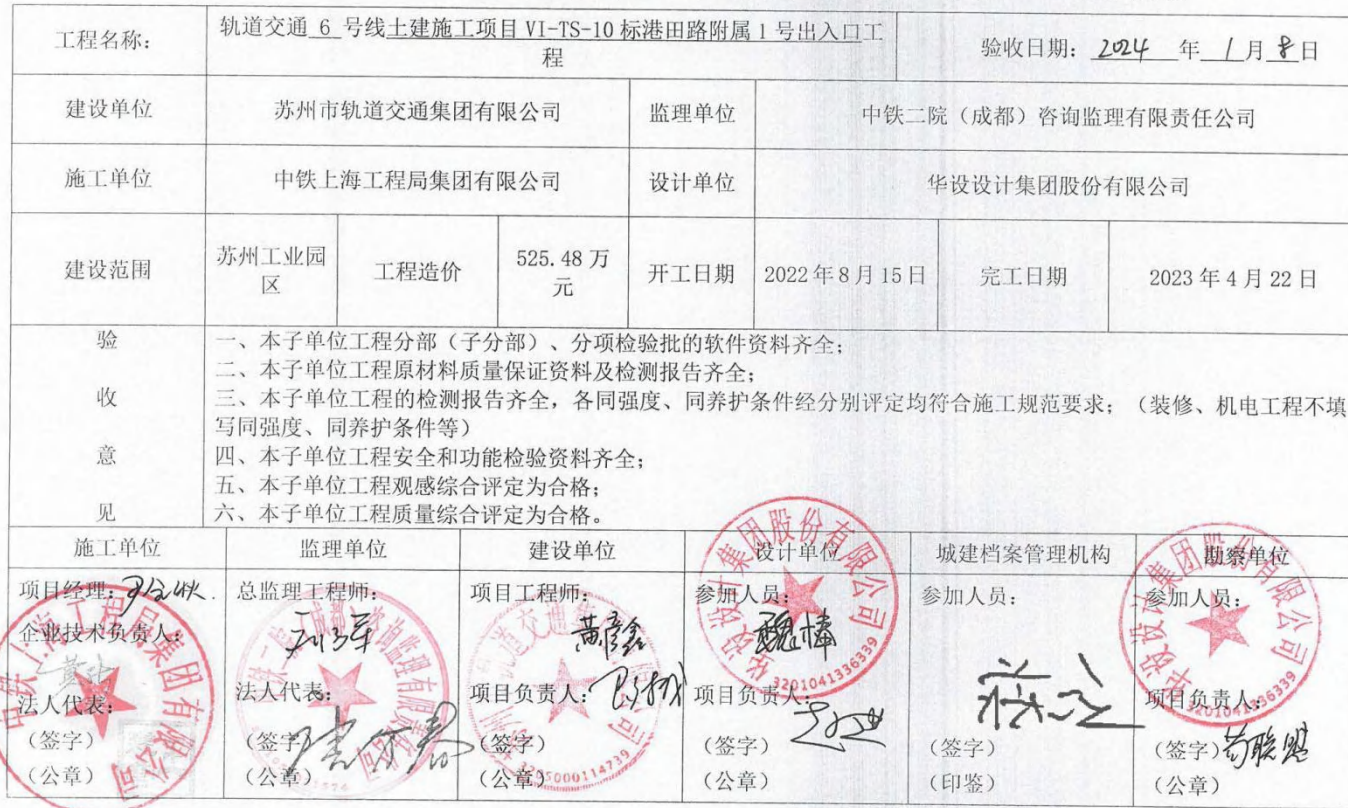 工程名称：
轨道交通 6 号线土建施工项目 VI-TS-10 标港田路附属 1 号出入口工
程
验收日期：2024 年 1 月 8 日
建设单位
苏州市轨道交通集团有限公司
监理单位
中铁二院（成都）咨询监理有限责任公司
施工单位
中铁上海工程局集团有限公司
设计单位
华设设计集团股份有限公司
建设范围
苏州工业园
区
工程造价
525.48 万
元
开工日期
2022 年 8 月 15 日
完工日期
2023 年 4 月 22 日
验
收
意
见
一、本子单位工程分部（子分部）、分项检验批的软件资料齐全；
二、本子单位工程原材料质量保证资料及检测报告齐全；
三、本子单位工程的检测报告齐全，各同强度、同养护条件经分别评定均符合施工规范要求；（装修、机电工程不填
写同强度、同养护条件等）
四、本子单位工程安全和功能检验资料齐全；
五、本子单位工程观感综合评定为合格；
六、本子单位工程质量综合评定为合格。
施工单位
监理单位
建设单位
设计单位
城建档案管理机构
勘察单位
项目经理：
企业技术负责人：
法人代表：
（签字）
（公章）
总监理工程师：
法人代表：
（签字）
（公章）
项目工程师：
黄彦鑫
项目负责人：
（签字）
（公章）
3205000114739
参加人员：
项目负责人：
（签字）
（公章）
华设设计集团股份有限公司
3201041336339
参加人员：
（签字）
（印鉴）
参加人员：
项目负责人：
（签字）
（公章）
华设设计集团股份有限公司
3201041336339